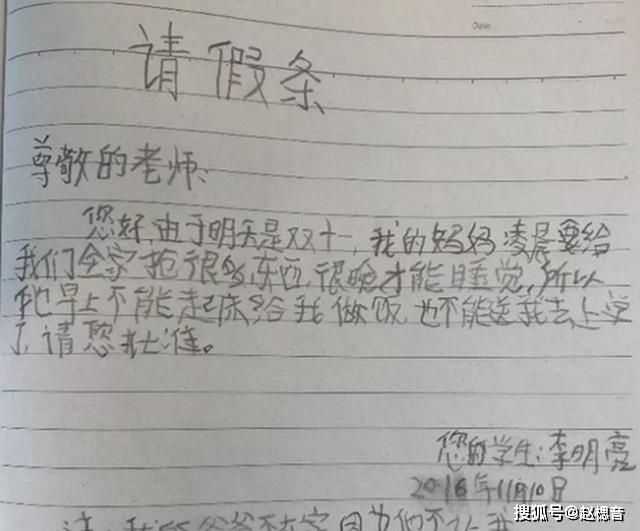 Date
请假条
尊敬的老师:
您好,由于明天是双十一,我的妈妈凌晨要给
我们全家抢很多东西,很晚才能睡觉,所以
他早上不能起床给我做饭,也不能送我去上学
了,请您批准。
您的学生:李明亮
2016年11月10日
搜狐号@赵楒音